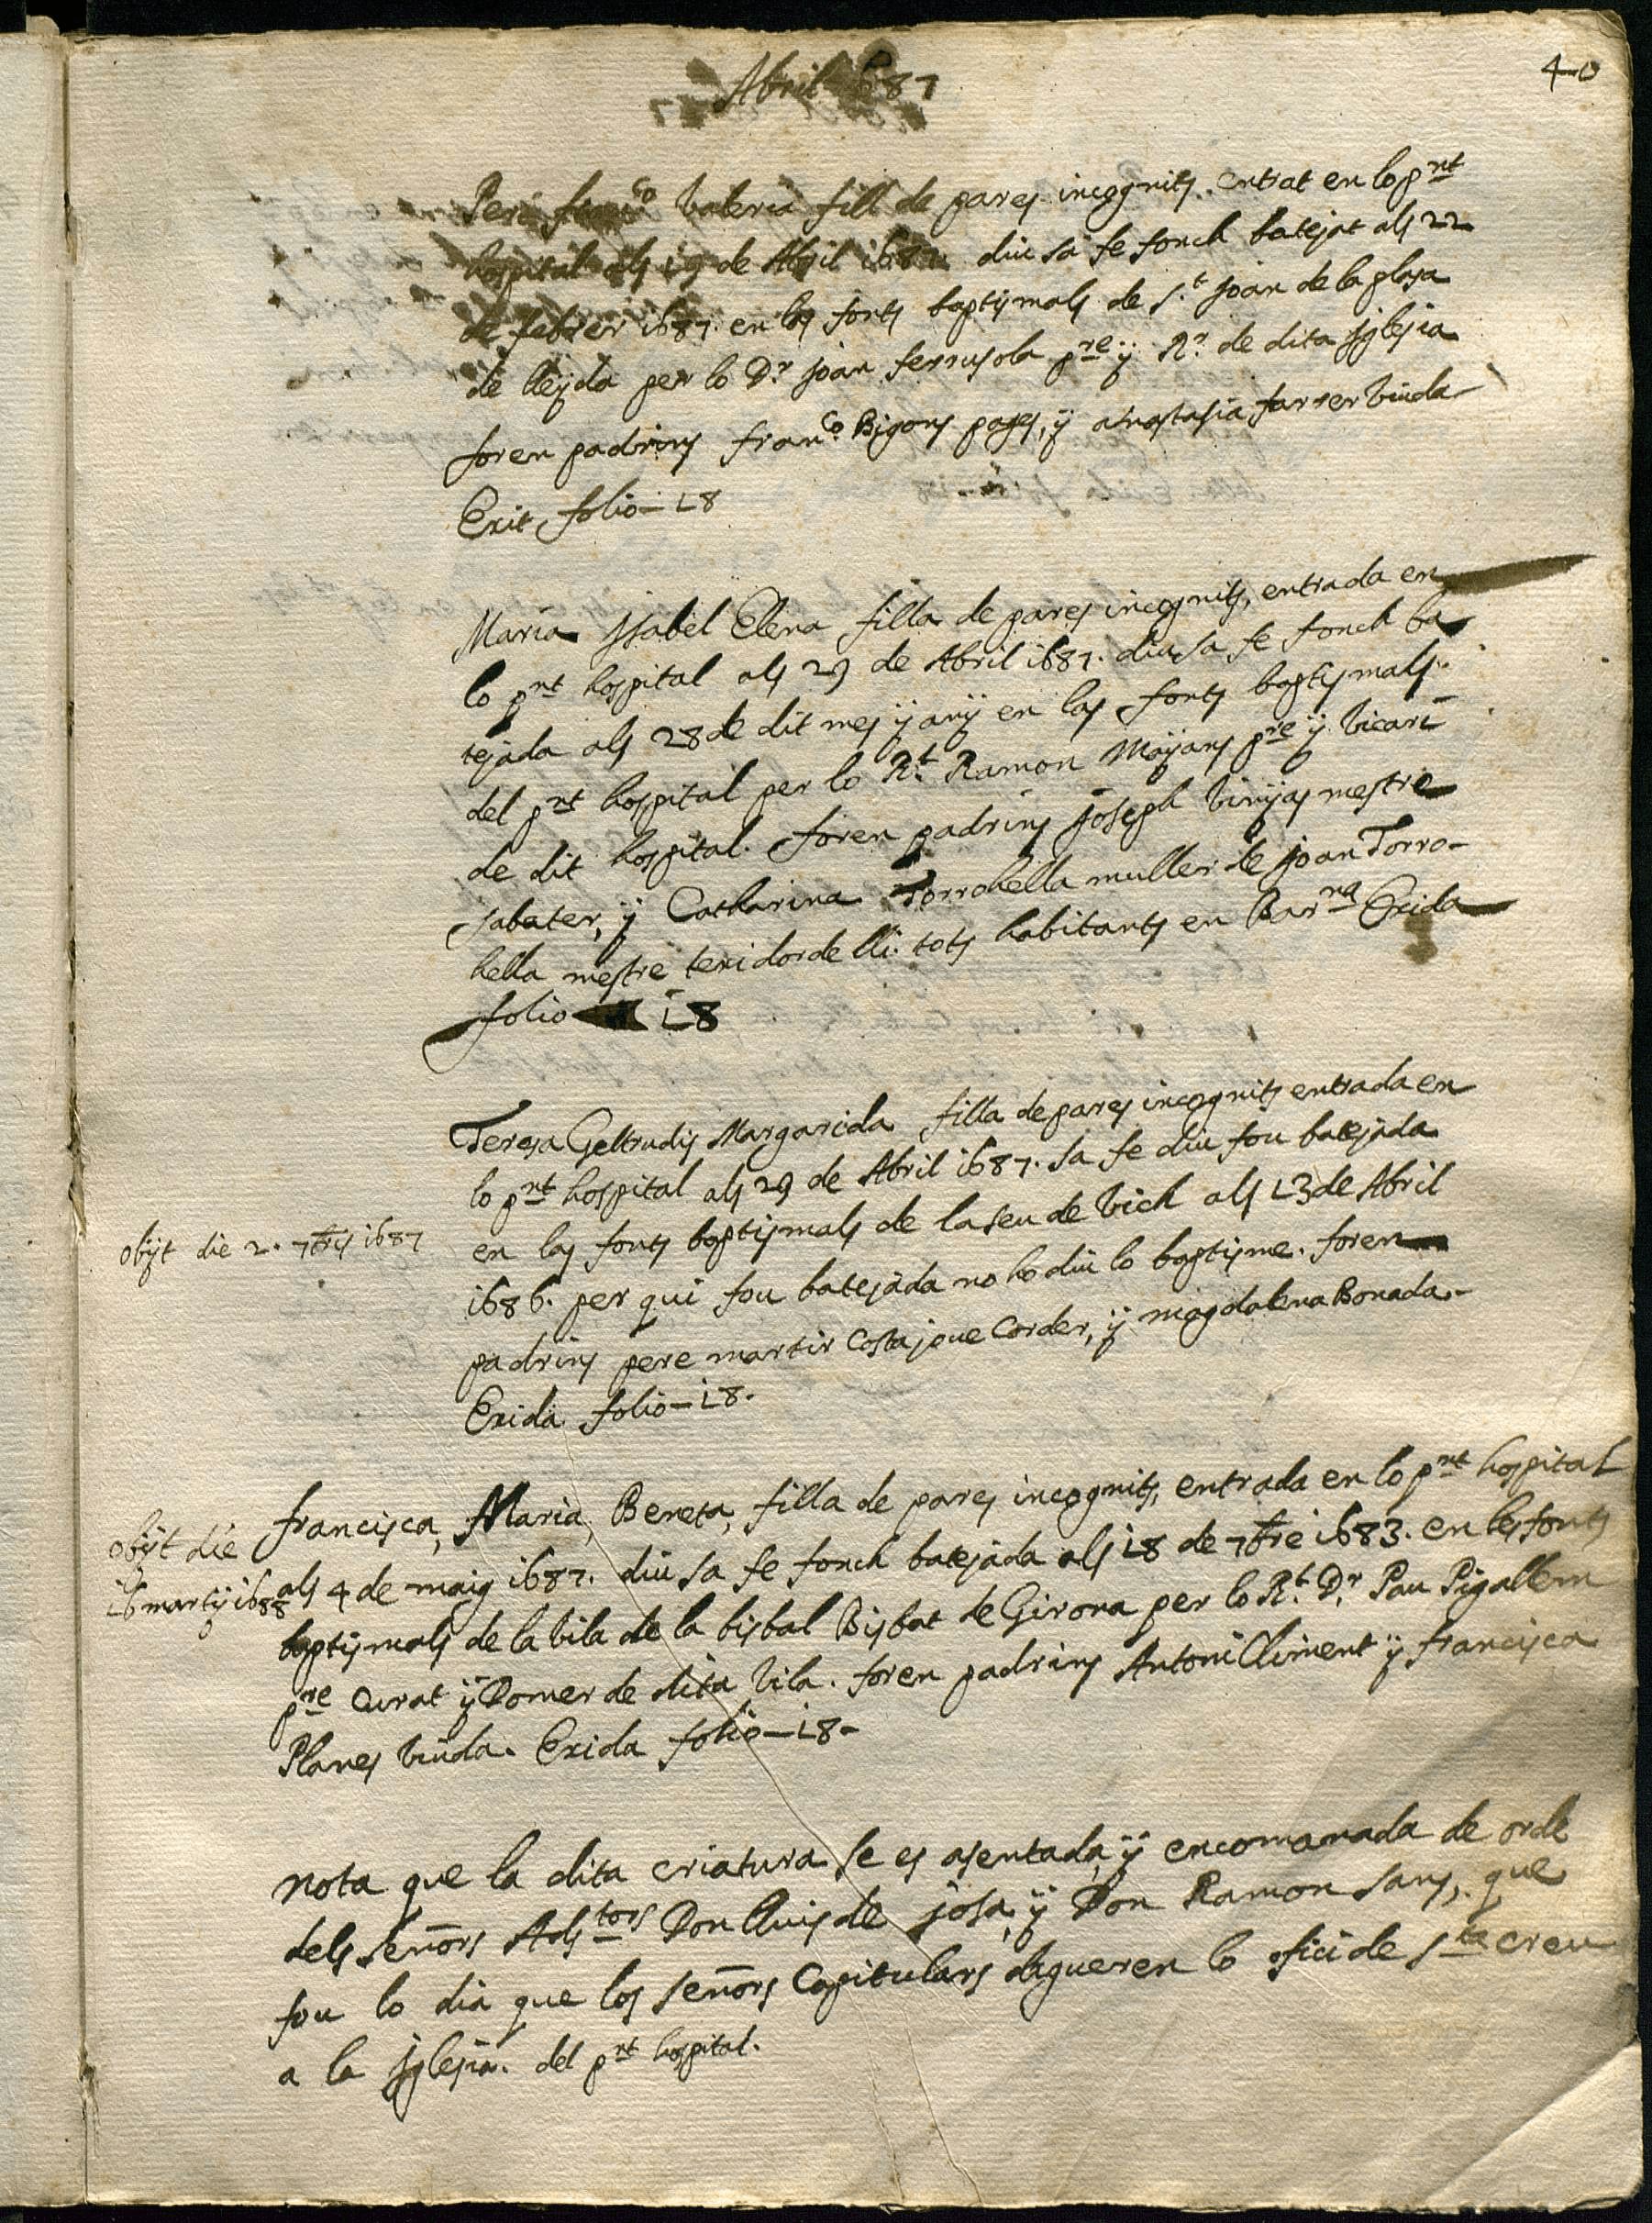 40
Abril 1687
Pere franco Valeria fill de pares incognits. entrat en lo pnt
hospital als 19 de Abril 1687. diu sa fe fonch batejat als 22
de febrer 1687. en las fonts baptismals de St. Joan de la plasa
de lleyda per lo Dr. joan ferrusola pre. y Rr. de dita Iglesia
foren padrins franco. Bigons pages, y atnastasia farrer viuda
Exit folio - 18
Maria Isabel Elena filla de pares incognits, entrada en
lo pnt hospital als 29 de Abril 1687. diu sa fe fonch ba
tejada als 28 de dit mes y any en las fonts baptismals
del pnt hospital per lo Rt. Ramon Mayans pre y vicari
de dit hospital. foren padrins joseph vinyas mestre
sabater, y Catharina Torrobella muller de joan Torro-
bella mestre texidor de lli. tots habitants en Barna Exida
folio 18
Teresa Geltrudis Margarida filla de pares incognits entrada en
lo pnt hospital als 29 de Abril 1687. sa fe diu fou batejada
en las fonts baptismals de la seu de Vich als 13 de Abril
1686. per qui fou batejada no ho diu lo baptisme. foren
padrins pere martir Costa jove Corder, y magdalena Bonada.-
Exida folio - 18.
obijt die 2. 7bris 1687
francisca, Maria, Beneta, filla de pares incognits, entrada en lo pnt hospital
als 4 de maig 1687. diu sa fe fonch batejada als 18 de 7bre 1683. en les fonts
baptismals de la vila de la bisbal Bisbat de Girona per lo Rt. Dr. Pau Pigallem
pre Curat y Domer de dita vila. foren padrins Antoni Climent y francisca
Planes viuda. Exida folio - 18 -
obijt die
16 martij 1688
nota que la dita criatura se es asentada, y encomanada de orde
dels señors Adstors Don lluis de josa, y Don Ramon Sans, que
fou lo dia que los señors Capitulars digueren lo ofici de Sta creu
a la Iglesia. del pnt hospital.